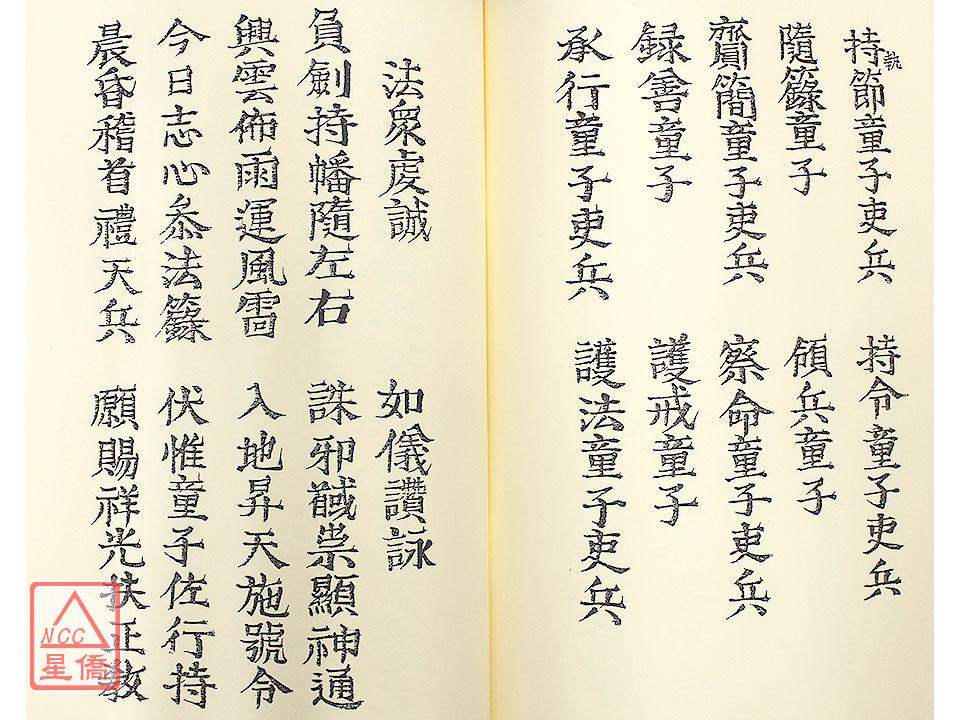 持節童子吏兵
執
持令童子吏兵
隨籙童子
領兵童子
賫簡童子吏兵
察命童子吏兵
録善童子
護戒童子
承行童子吏兵
護法童子吏兵
法衆虔誠
如儀讚詠
負劍持幡隨左右
誅邪馘祟顯神通
興雲佈雨運風雷
入地昇天施號令
今日志心叅法籙
伏惟童子佐行持
晨昏稽首禮天兵
願賜祥光扶正教
NCC
星僑